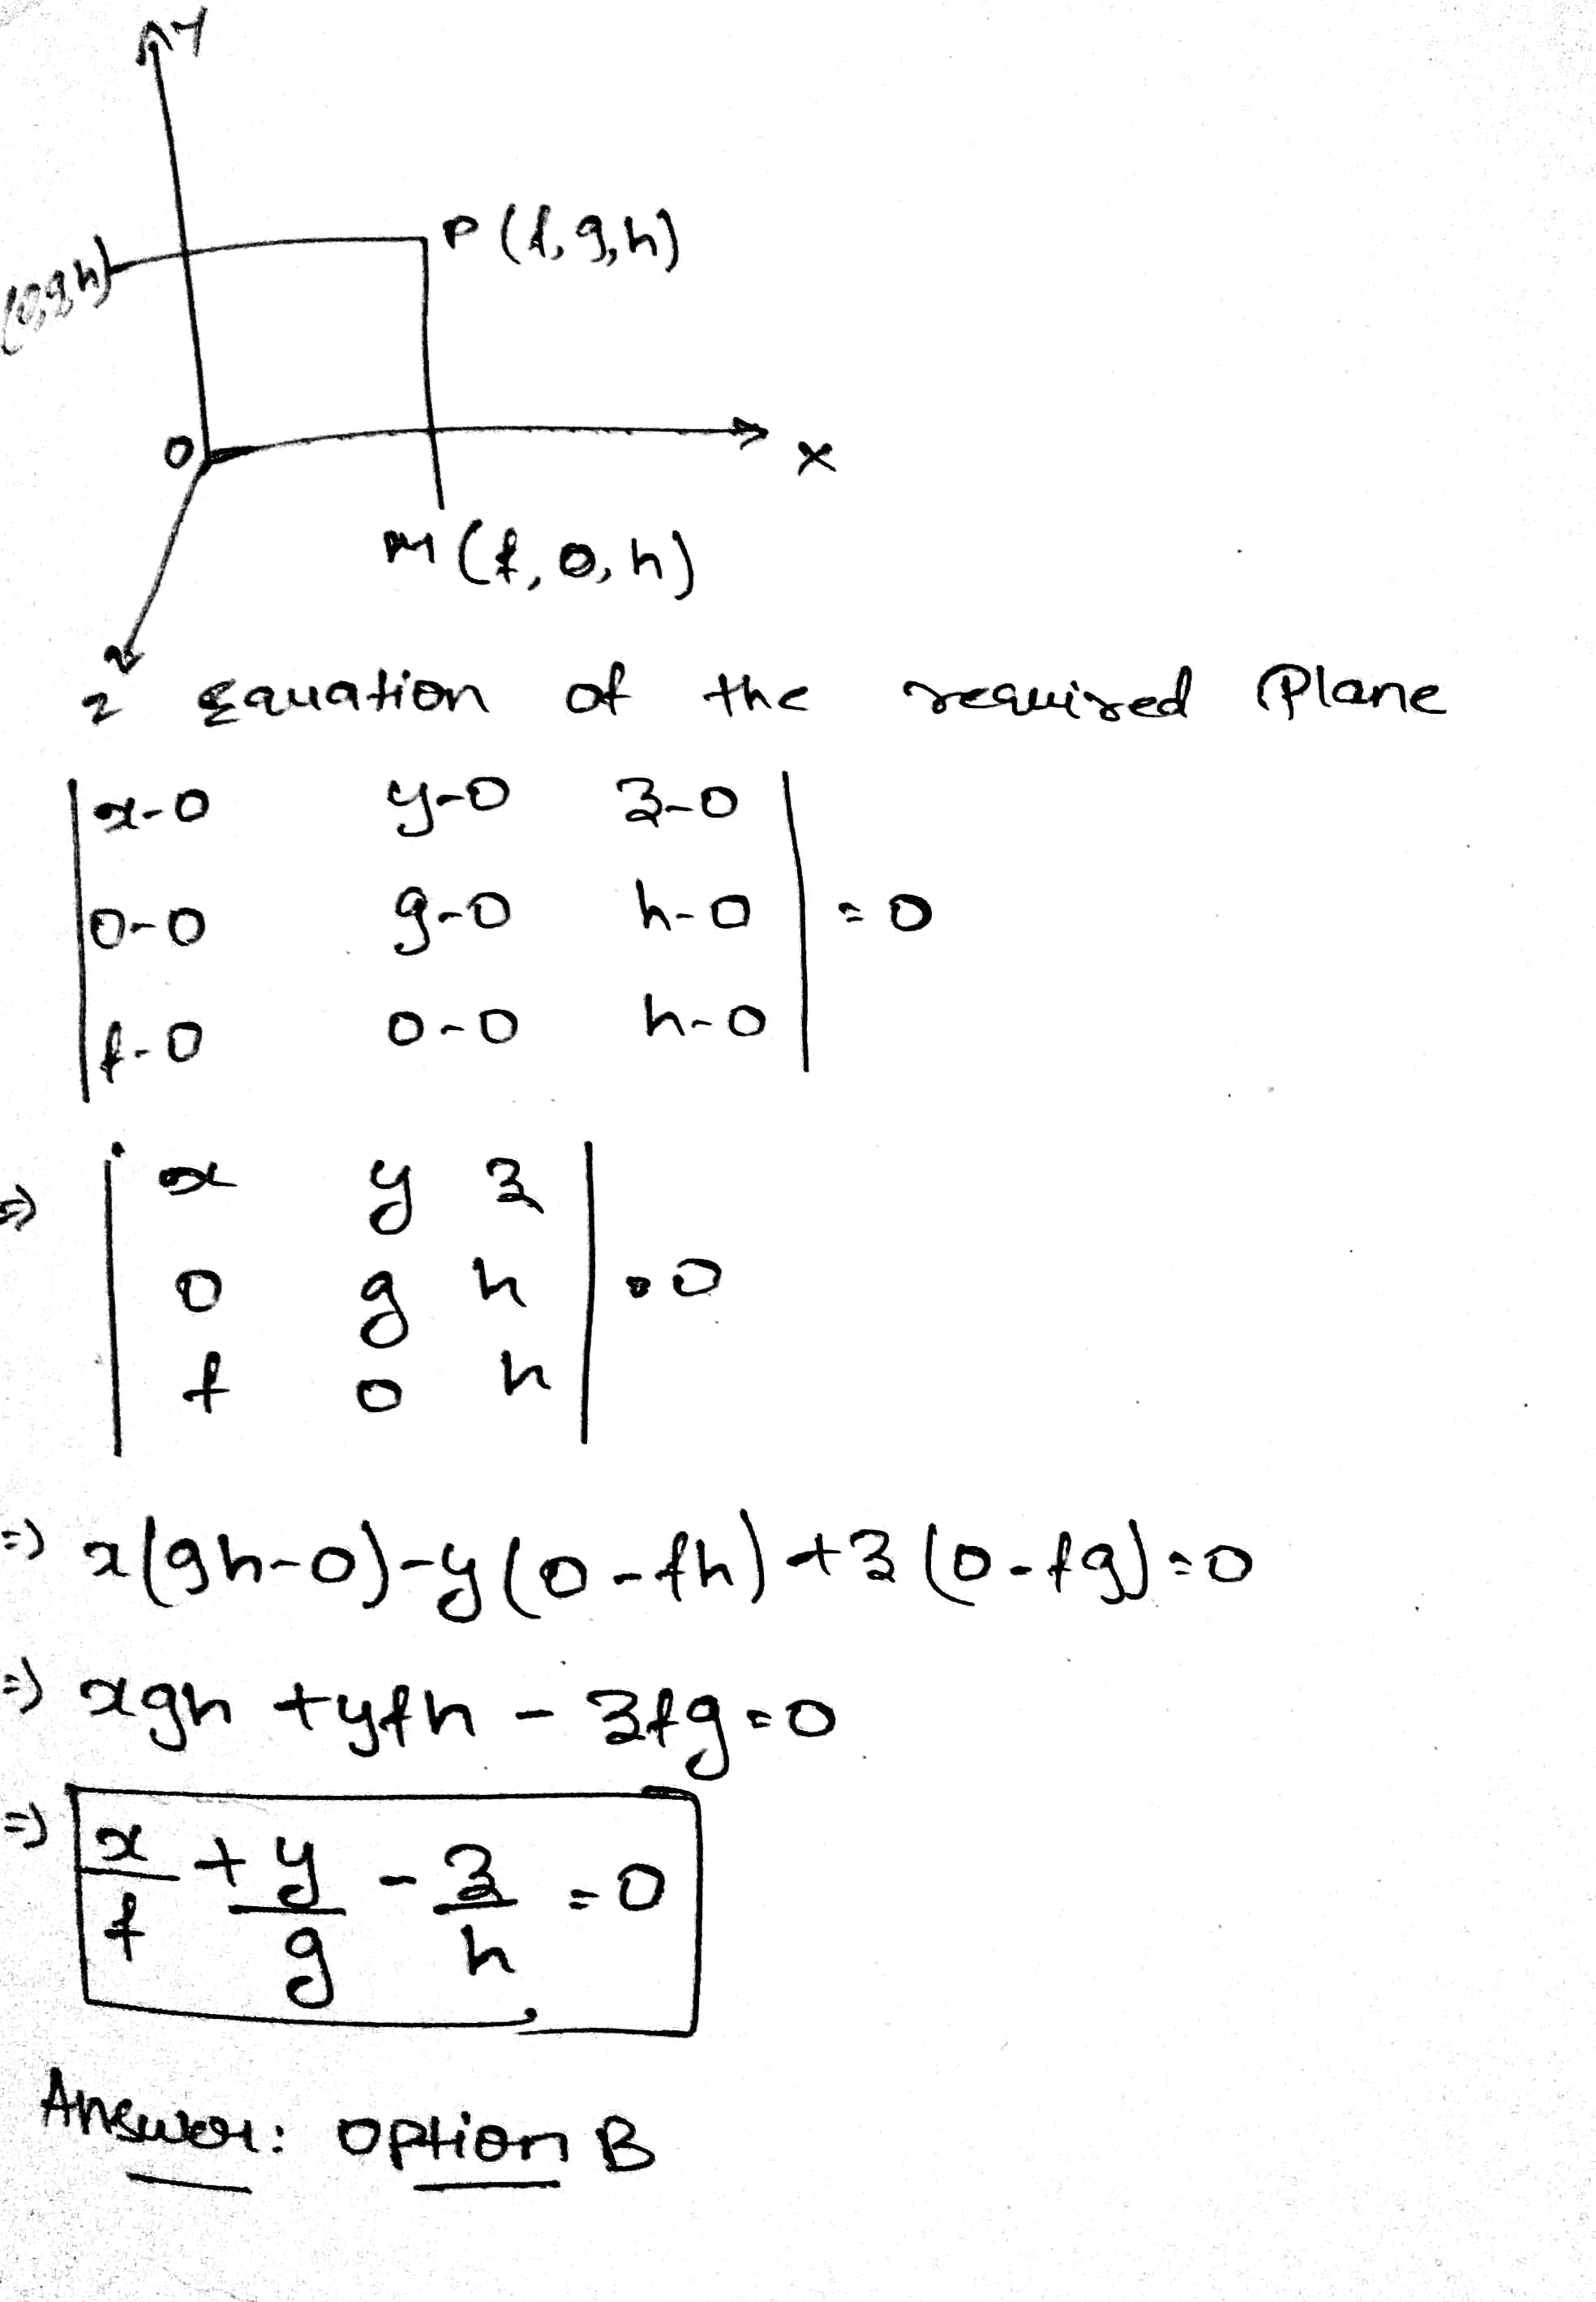 Y
P(f,g,h)
(0,g,h)
O
X
M(f,0,h)
z
Equation of the required Plane
|x-0 y-0 z-0|
|0-0 g-0 h-0| =0
|f-0 0-0 h-0|
⇒ |x y z|
|0 g h| =0
|f 0 h|
⇒ x(gh-0)-y(0-fh)+z(0-fg)=0
⇒ xgh+yfh-zfg=0
⇒ x/f + y/g - z/h =0
Answer: Option B